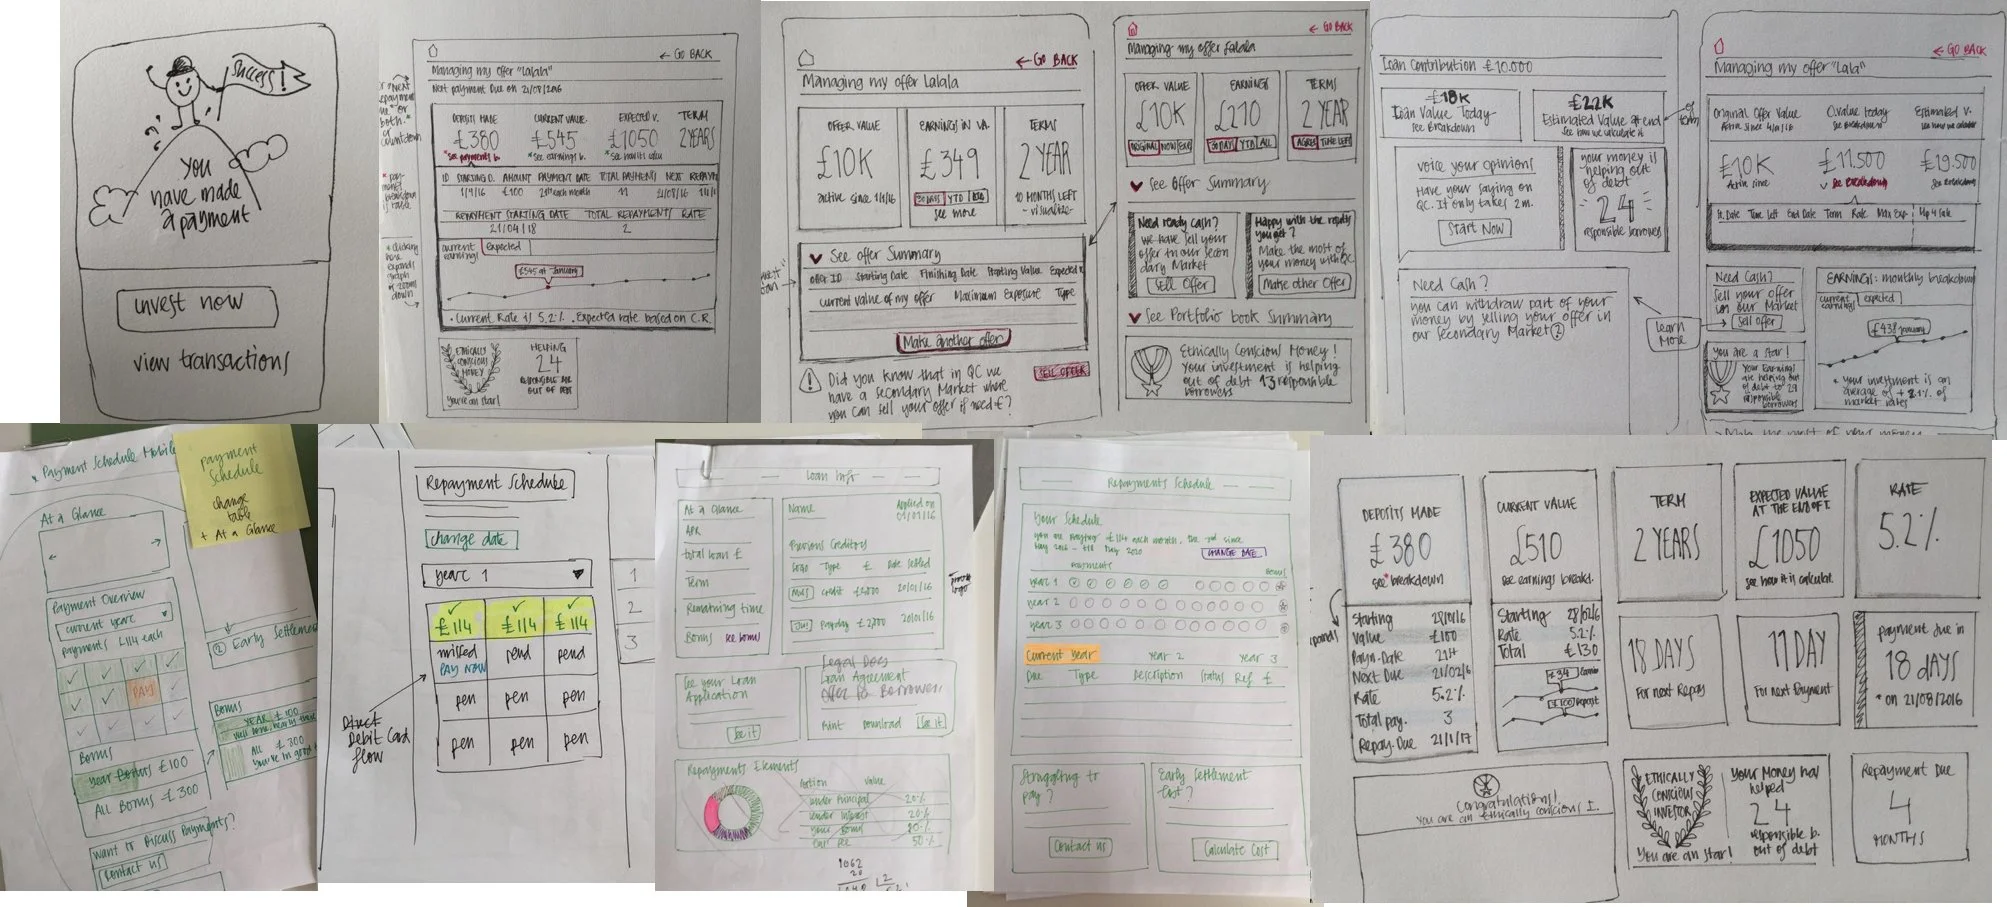 Success!
You
have made
a payment
invest now
view transactions
← GO BACK
Managing my offer "Lalala"
Next payment Due on 21/08/2016
DEPOSITS MADE CURRENT VALUE EXPECTED V. TERM
£380 £545 £1050 2 YEARS
*see payments b. *see earnings b. *see how its calcu
ID STARTING D. AMOUNT PAYMENT DATE TOTAL PAYMENTS NEXT REPAYM
1/9/16 £100 21th each month 11 21/08/16
REPAYMENT STARTING DATE TOTAL REPAYMENTS RATE
21/04/18 2
current earnings Expected
£545 at January
· Current Rate is 5.2% . Expected rate based on C.R.
ETHICALLY
CONSCIOUS
MONEY
You're an star!
HELPING
24
RESPONSIBLE
OUT OF DEBT
← GO BACK
Managing my offer Lalala
OFFER VALUE
£10K
active since 1/1/16
EARNINGS IN
£349
30 DAYS YTD ALL
see more
TERMS
2 YEAR
10 MONTHS LEFT
-visualize-
See offer Summary
offer ID Starting Date Finishing Date Starting Value Expected
current value of my offer Maximum Exposure Type
Make another offer
Did you know that in QC we
have a secondary Market where
you can sell your offer if need £?
SELL OFFER
← GO BACK
Managing my offer lalala
OFFER VALUE
£10K
ORIGINAL NOW EXP
EARNINGS
£210
30 DAYS YTD ALL
TERMS
2 YEAR
AGREE TIME LEFT
See Offer Summary
Need ready cash?
we have sell your
offer in our Secon
dary Market
Sell Offer
Happy with the results
you get?
Make the most of
your money with QC.
Make other Offer
See Portfolio book Summary
Ethically Conscious Money!
Your investment is helping
out of debt 13 responsible
borrowers
Loan Contribution £10.000
£18K
Loan Value Today
see Breakdown
£22K
Estimated Value at end
see how we calculate it
of term
Voice your opinions
Have your saying on
QC. It only takes 2m.
Start Now
your money is
helping out
of debt
24
responsible borrowers
Need Cash?
you can withdraw part of your
money by selling your offer in
our Secondary Market
Learn
More
← GO BACK
Managing my offer "Lala"
Original Offer Value O.value today Estimated V.
Active since 4/01/16 See Breakdown see how we calculate
£10K £11,500 £19,500
Active since see Breakdown see Breakdown
St. Date Time Left End Date Term Rate Max Exp
Need Cash?
Sell your offer
on our Market
Sell offer
You are a star!
Your Earnings
are helping out
of debt to 29
responsible
borrowers
EARNINGS: monthly breakdown
current earnings expected
£43 January
* your investment is an
average of + 2.1% of
market rates
Payment Schedule Mobile
Payment
Schedule
change
table
+ At a Glance
At a Glance
Payment Overview
current year
payments £114 each
PAY
Bonus
year Bonus £100
All Bonus £300
want to Discuss Payments?
Contact us
② Early Settlement
Bonus
YEAR £100
ALL £300
Repayment Schedule
change date
year 1
£114 £114 £114
missed pend pend
PAY NOW
pen pen pen
pen pen pen
Direct
Debit Card
flow
1
2
3
Loan Info
At a Glance
APR
total loan £
Term
Remaining time
Bonus see bonus
Name
Applied on
01/01/16
Previous Creditors
Logo Type £ Date settled
credit £5,000 20/01/16
Payday £2,700 20/01/16
See your Loan
Application
See it
Legal Docs
Loan Agreement
Offer to Borrower
Print Download See it
Repayments Elements
portion value
lender Principal 20%
lender interest 20%
your Bonus
our fee 50%
Repayments Schedule
Your Schedule
you are paying £114 each month, the 2nd since
May 2016 - till May 2020
CHANGE DATE
payments Bonus
year 1
year 2
year 3
Current Year year 2 year 3
Due Type Description Status Ref £
Struggling to
pay?
Contact us
Early Settlement
Cost?
Calculate Cost
DEPOSITS MADE
£380
see breakdown
Starting 28/01/16
Value £100
Paym-Date 21st
Next Due 21/02/16
Rate 5.2%
Total pay. 3
Repay. Due 21/1/17
CURRENT VALUE
£510
see earnings breakd.
Starting 28/02/16
Rate 5.2%
Total £130
TERM
2 YEARS
EXPECTED VALUE
AT THE END OF T.
£1050
see how it is calculat.
RATE
5.2%
18 DAYS
For next Repay
11 DAY
For next Payment
payment due in
18 days
* on 21/08/2016
Congratulations!
You are an ethically conscious I.
ETHICALLY
CONSCIOUS
INVESTOR
You are an star!
Your Money has
helped
24
responsible b.
out of debt
Repayment Due
4
MONTHS